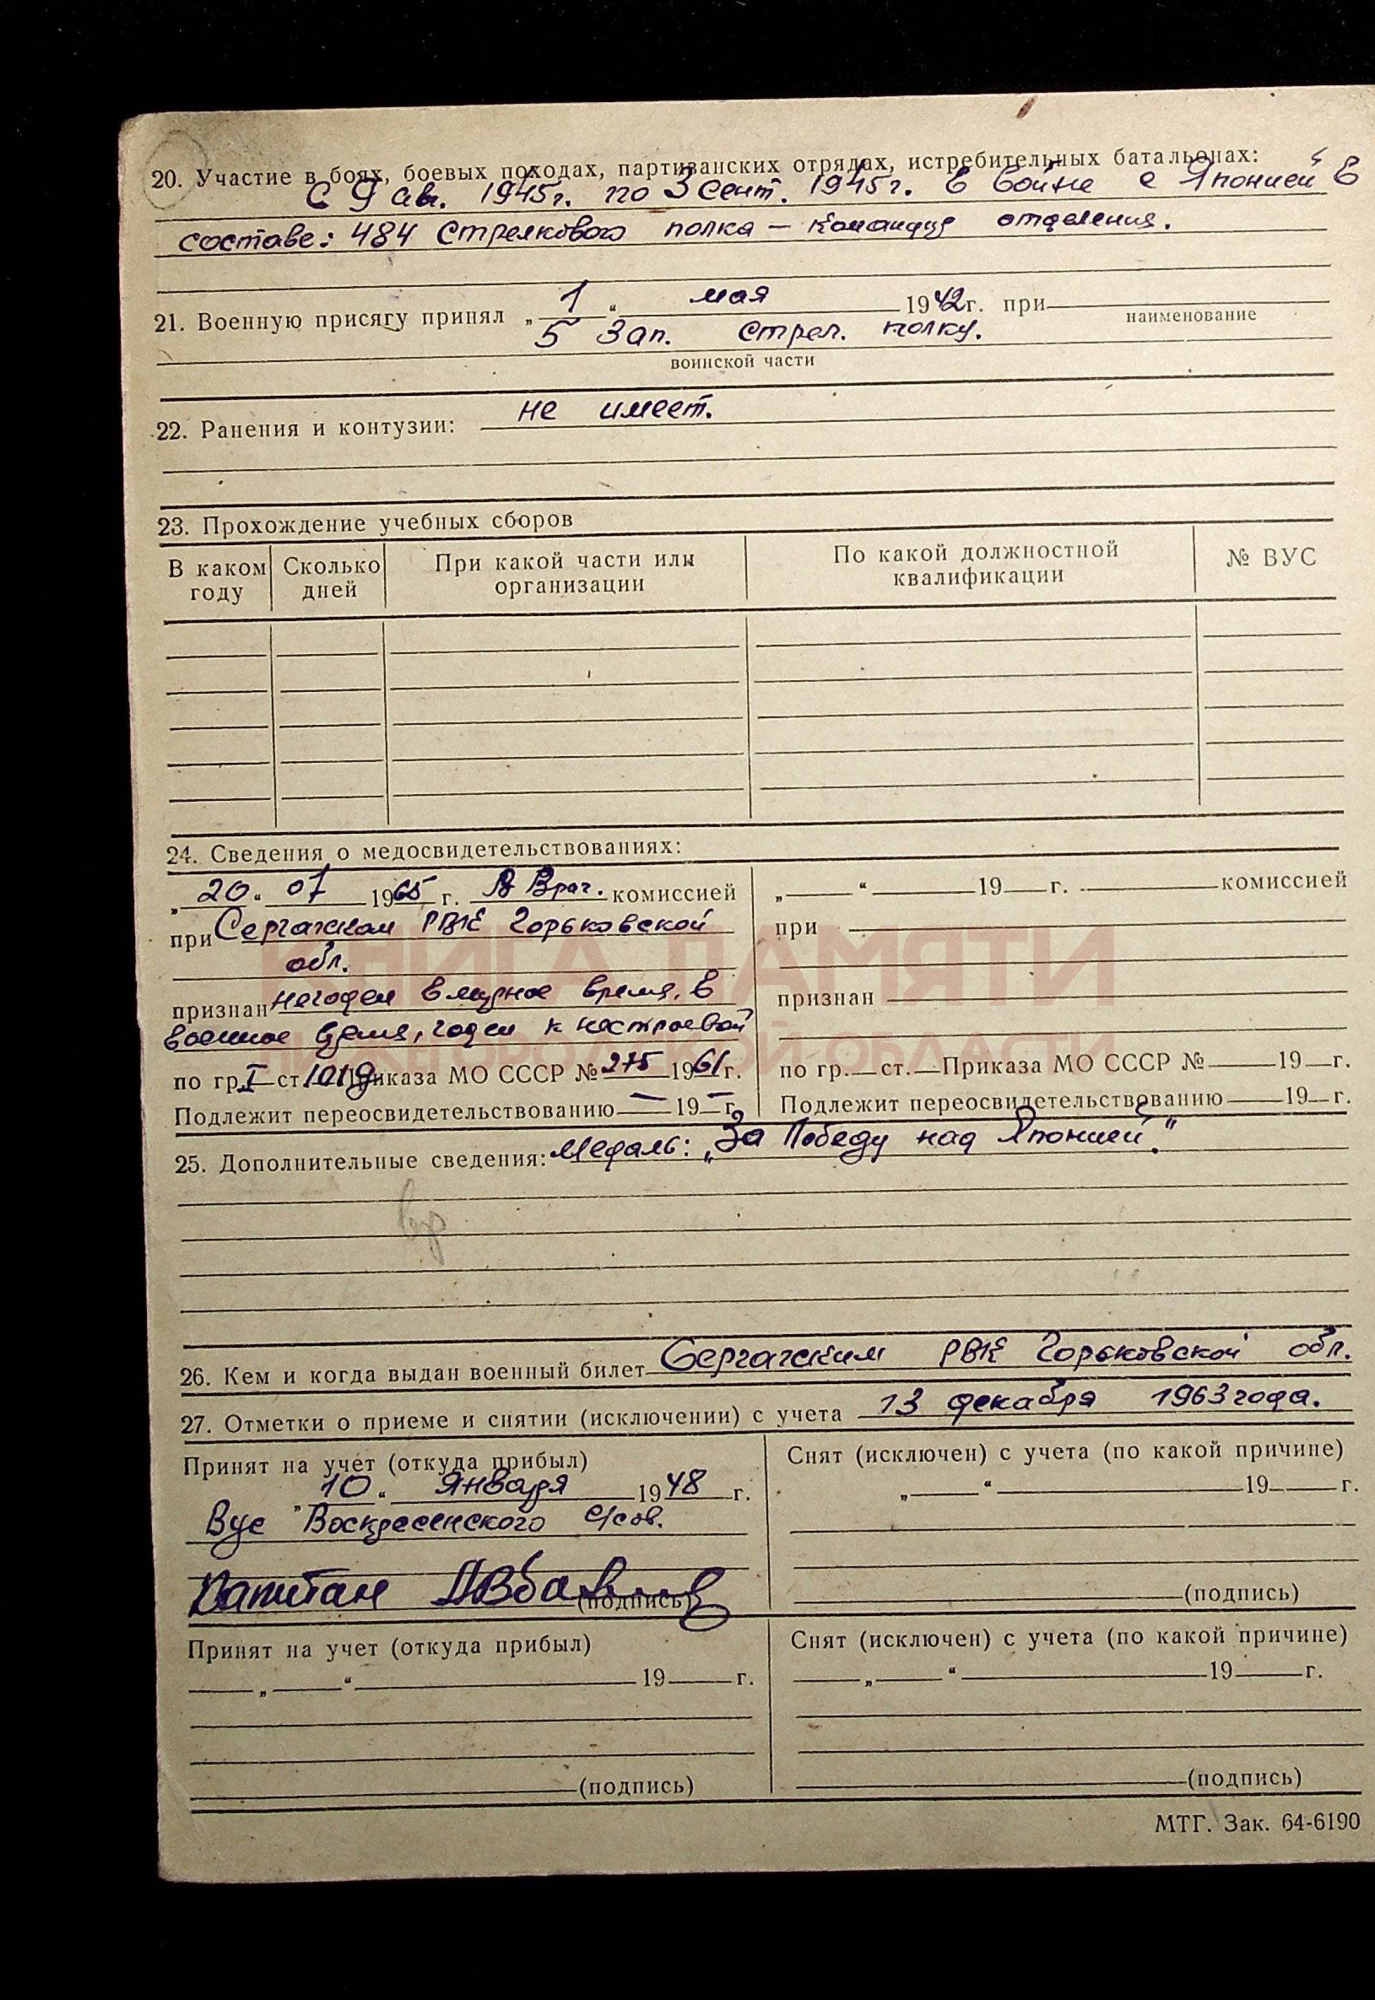 20. Участие в боях, боевых походах, партизанских отрядах, истребительных батальонах:
С 9 ав. 1945г. по 3 сент. 1945г. в войне с Японией в
составе: 484 Стрелкового полка — командир отделения.
21. Военную присягу принял „ 1 “ мая 1942г. при
наименование
5 Зап. Стрел. полку.
воинской части
22. Ранения и контузии: не имеет.
23. Прохождение учебных сборов
В каком году Сколько дней При какой части или организации По какой должностной квалификации № ВУС
24. Сведения о медосвидетельствованиях:
„ 20 “ 07 1965 г. Врач. комиссией
при Сергачском РВК Горьковской
обл.
признан негоден в мирное время, в
военное время, годен к нестроевой
по гр. I ст. Приказа МО СССР № 275 1961г.
Подлежит переосвидетельствованию — 19 — г.
„ “ 19 г. комиссией
при
признан
по гр. ст. Приказа МО СССР № 19 г.
Подлежит переосвидетельствованию 19 г.
КНИГА ПАМЯТИ
НИЖЕГОРОДСКОЙ ОБЛАСТИ
25. Дополнительные сведения: Медаль: „За Победу над Японией."
26. Кем и когда выдан военный билет Сергачским РВК Горьковской обл.
27. Отметки о приеме и снятии (исключении) с учета 13 декабря 1963 года.
Принят на учет (откуда прибыл)
„ 10 “ января 1948 г.
Вус Воскресенского с/сов.
Капитан
(подпись)
Снят (исключен) с учета (по какой причине)
„ “ 19 г.
(подпись)
Принят на учет (откуда прибыл)
„ “ 19 г.
(подпись)
Снят (исключен) с учета (по какой причине)
„ “ 19 г.
(подпись)
МТГ. Зак. 64-6190